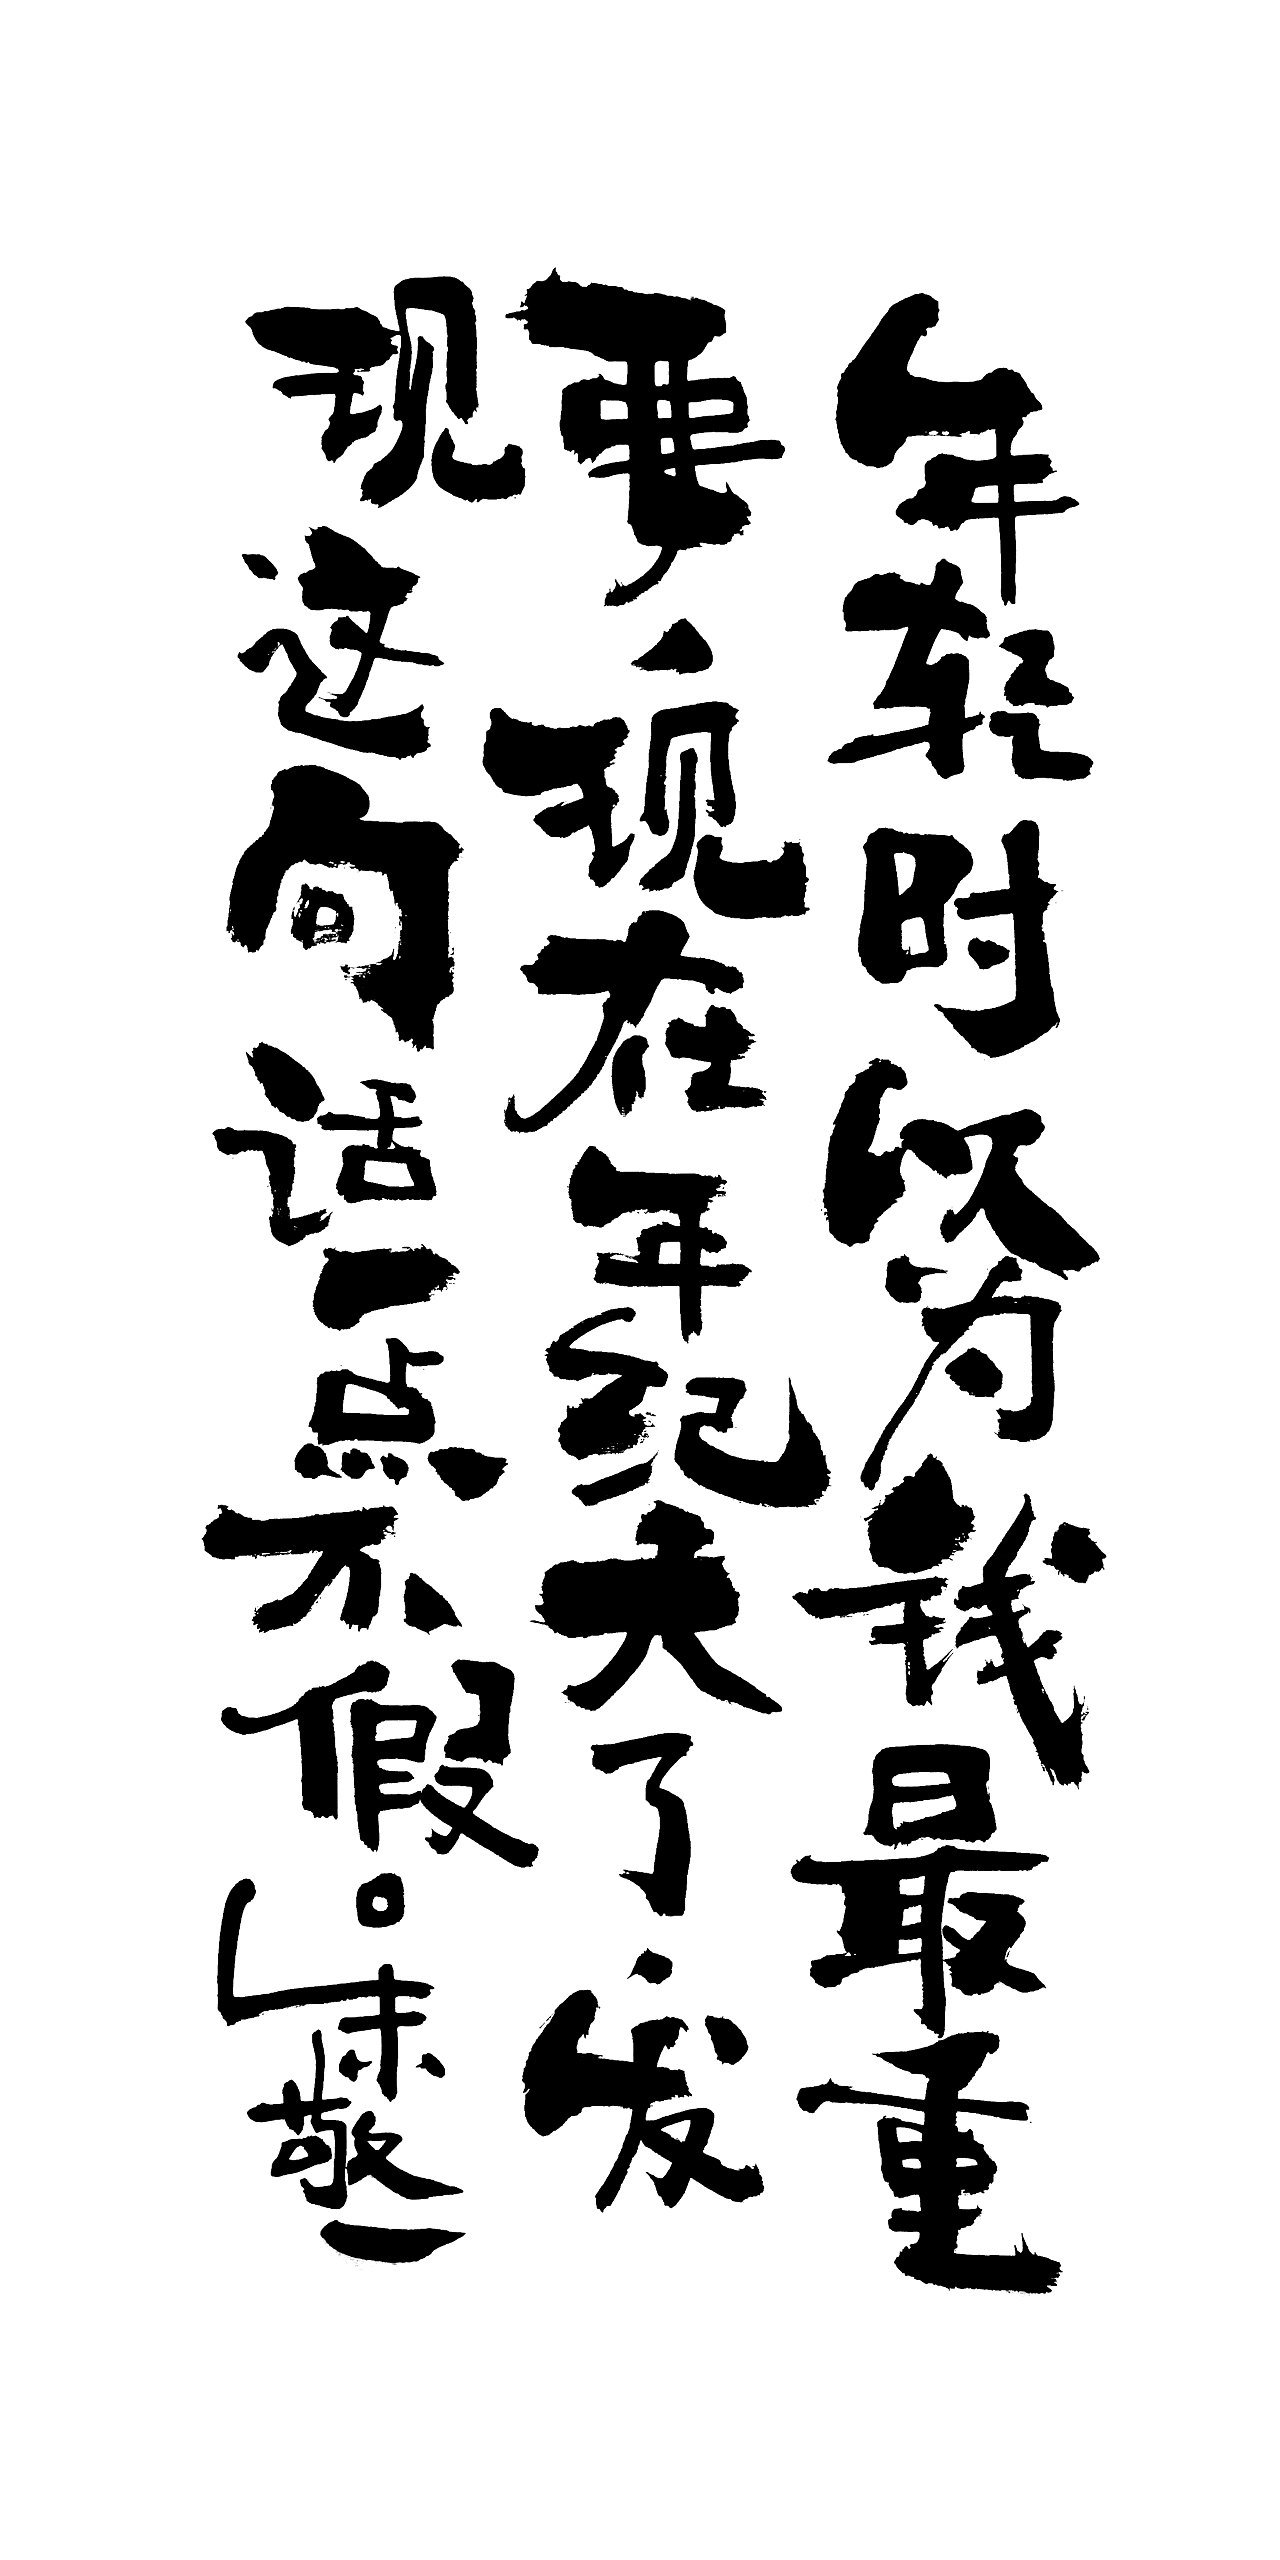 年轻时以为钱最重
要，现在年纪大了，发
现这句话一点不假。